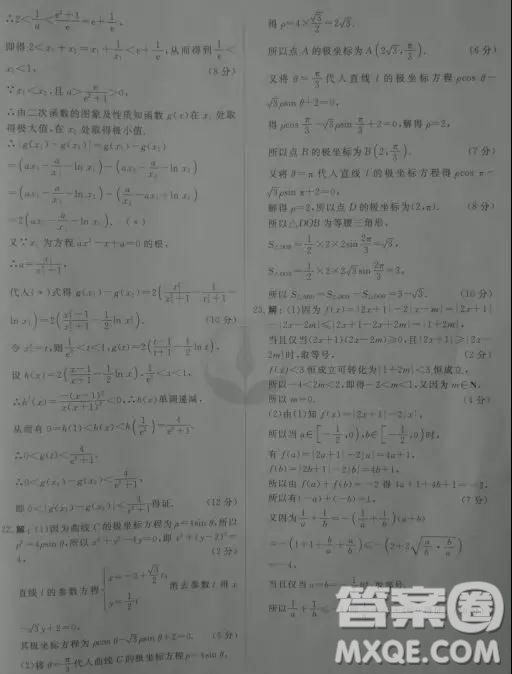 ∴2<1/a<(e²+1)/e=e+1/e,
即得 2<x₁+x₂=x₁+1/x₁<e+1/e,从而得到 1/e<
x₁<1, (8分)
∵x₁<x₂,且a>e/(e²+1)>0,
∴由二次函数的图象及性质知函数g(x)在x₁处取
得极大值,在x₂处取得极小值.
∴|g(x₁)-g(x₂)|=g(x₁)-g(x₂)
=(ax₁-a/x₁-ln x₁)-(ax₂-a/x₂-ln x₂)
=(ax₁-a/x₁-ln x₁)-(a/x₁-ax₁+ln x₁)
=2(ax₁-a/x₁-ln x₁). (*)
又∵x₁为方程ax²-x+a=0的根,
∴a=x₁/(x₁²+1).
代入(*)式得g(x₁)-g(x₂)=2(x₁²/(x₁²+1)-1/(x₁²+1)-
ln x₁)=2((x₁²-1)/(x₁²+1)-1/2 ln x₁²). (10分)
令x₁²=t,则1/e²<t<1,g(t)=2((t-1)/(t+1)-1/2 ln t),
设h(x)=2((x-1)/(x+1)-1/2 ln x),1/e²<x<1,
∴h′(x)=-(x-1)²/(x(x+1)²)<0,∴h(x)单调递减,
从而有0=h(1)<h(x)<h(1/e²)=4/(e²+1).
∴0<g(t)<4/(e²+1).
∴0<g(x₁)-g(x₂)<4/(e²+1).
即0<|g(x₁)-g(x₂)|<4/(e²+1)得证. (12分)
22.解:(1)因为曲线C的极坐标方程为ρ=4sin θ,所以
ρ²=4ρsin θ,所以x²+y²-4y=0,即x²+(y-2)²=
4, (2分)
直线l的参数方程{x=-2+√3/2 t, y=1/2 t 消去参数t得x
-√3y+2=0,
其极坐标方程为ρcos θ-√3ρsin θ+2=0. (5分)
(2)将θ=π/3代入曲线C的极坐标方程ρ=4sin θ,
得ρ=4×√3/2=2√3.
所以点A的极坐标为A(2√3,π/3). (6分)
又将θ=π/3代入直线l的极坐标方程ρcos θ-
√3ρsin θ+2=0,
得ρcos π/3-√3ρsin π/3+2=0,解得ρ=2,
所以点B的极坐标为B(2,π/3). (7分)
又将θ=π代入直线l的极坐标方程得ρcos π-
√3ρsin π+2=0,
解得ρ=2,所以点D的极坐标为(2,π). (8分)
所以△DOB为等腰三角形,
S△DOB=1/2×2×2sin 2π/3=√3,
S△DOA=1/2×2×2√3sin 2π/3=3,
所以S△ABD=S△DOA-S△DOB=3-√3. (10分)
23.解:(1)因为f(x)=|2x+1|-2|x-m|=|2x+1|
-|2x-2m|≤|2x+1-2x+2m|=|1+2m|,
当且仅当(2x+1)(2x-2m)≥0,且|2x+1|≥|2x-
2m|时,取等号, (2分)
f(x)<3恒成立可转化为|1+2m|<3恒成立,
所以-4<2m<2,即得-2<m<1,又因为m∈N,
所以m=0. (4分)
(2)由(1)知f(x)=|2x+1|-2|x|,
所以当a∈[-1/2,0),b∈[-1/2,0)时,
有f(a)=|2a+1|-2|a|=4a+1,
f(b)=|2b+1|-2|b|=4b+1,
所以由f(a)+f(b)=-2得4a+1+4b+1=-2,
所以有(-a)+(-b)=1, (7分)
又因为1/a+1/b=-(1/a+1/b)(a+b)
=-(1+1+b/a+a/b)≤-(2+2√(a/b·b/a))
=-4,
当且仅当a=b=-1/2时,取等号.
所以1/a+1/b≤-
答案圈
MXQE.COM